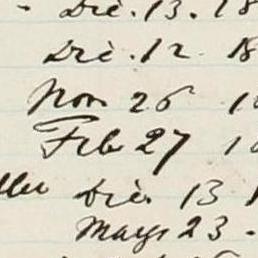 Dec. 13. 18
Dec. 12 18
Nov 26 1
Feb 27 1
Dec 13 1
May 23 -